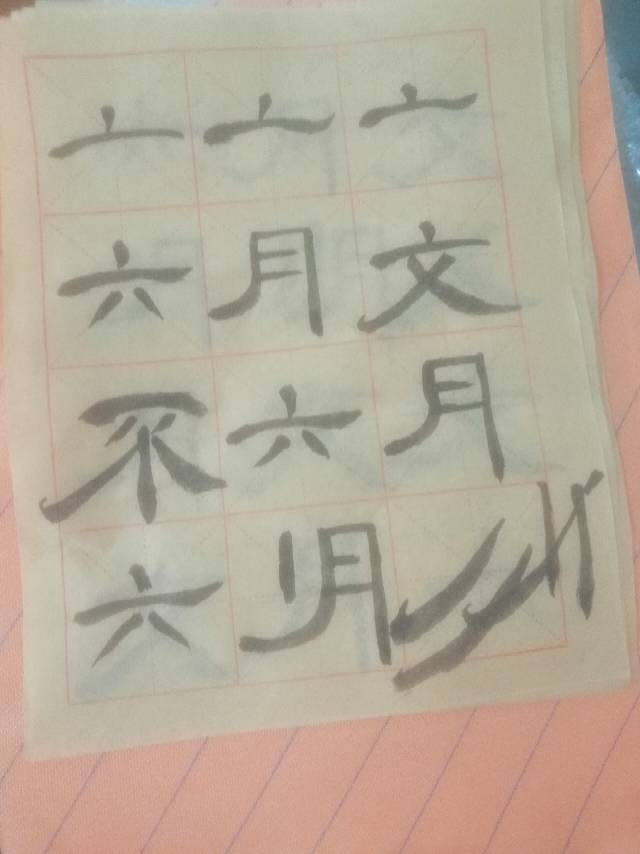 亠 亠 亠
六 月 文
不 六 月
六 月